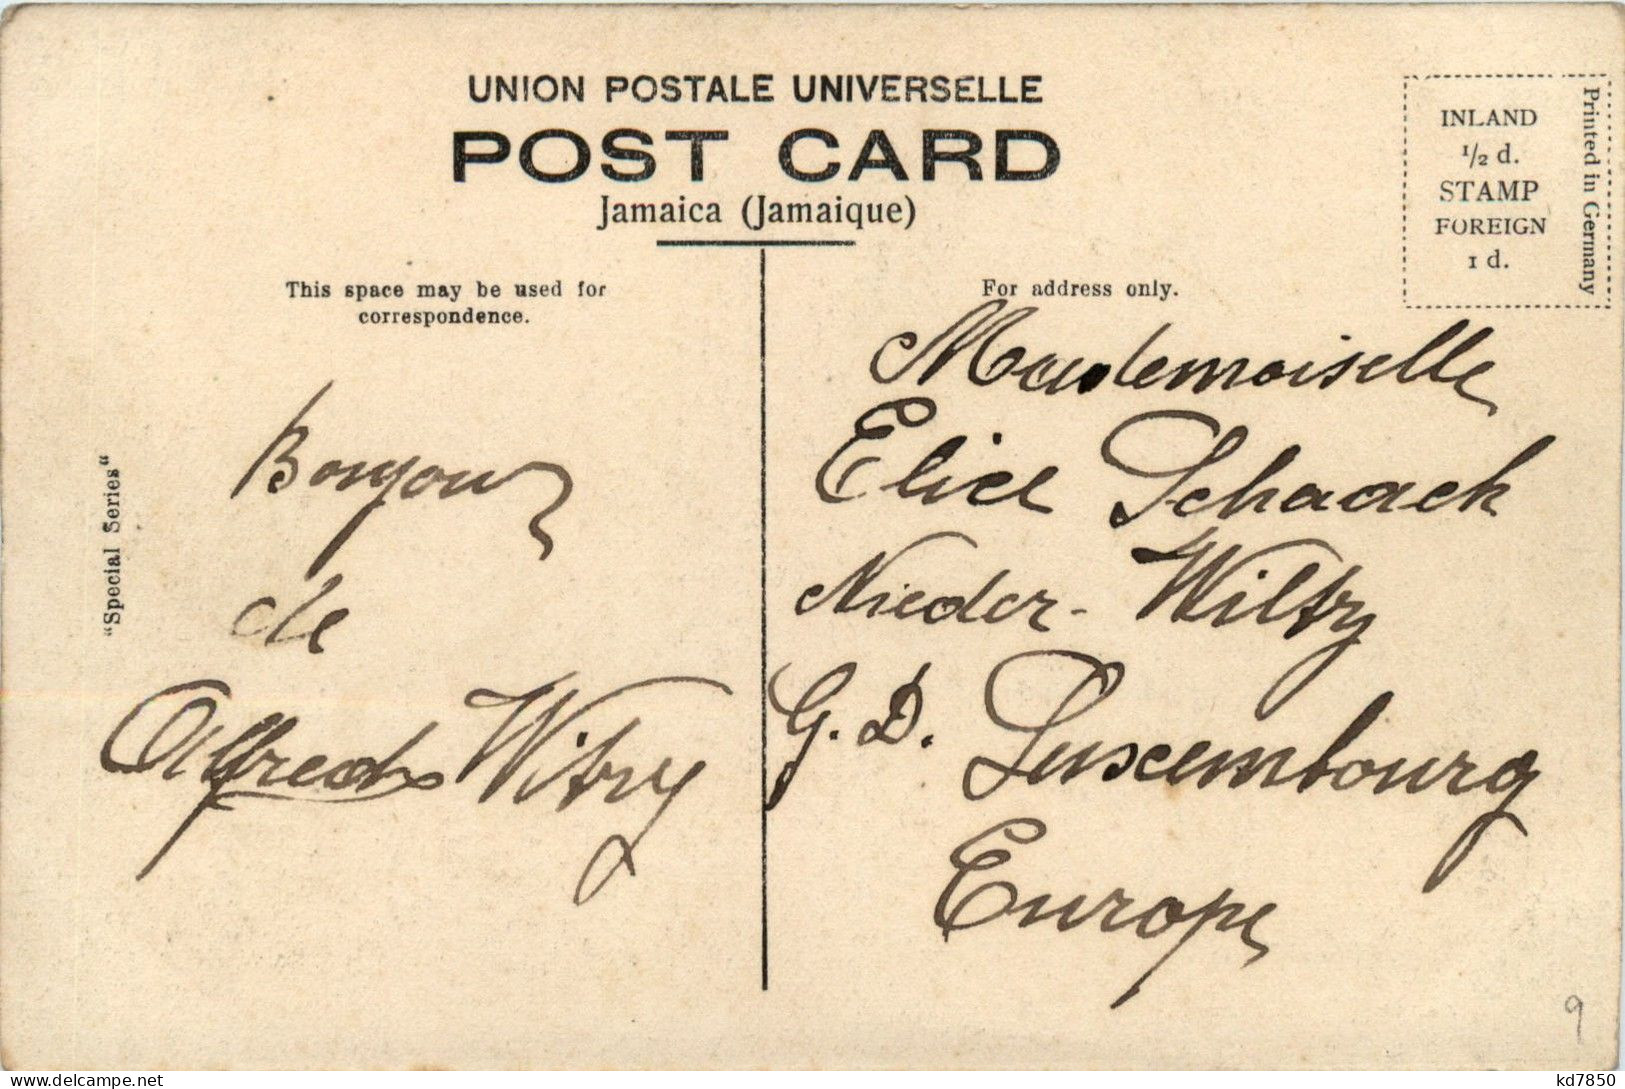 UNION POSTALE UNIVERSELLE
POST CARD
Jamaica (Jamaique)
INLAND
1/2 d.
STAMP
FOREIGN
1 d.
Printed in Germany
This space may be used for
correspondence.
"Special Series"
Bonjour
de
Alfred Witry
For address only.
Mademoiselle
Elise Schaack
Nieder-Wiltz
G. D. Luxembourg
Europe
9
kd7850